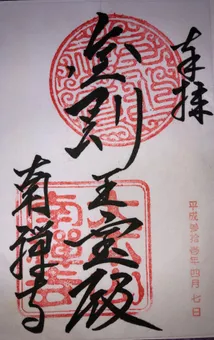 奉拝
金剛王宝殿
南禅寺
平成拾年四月七日